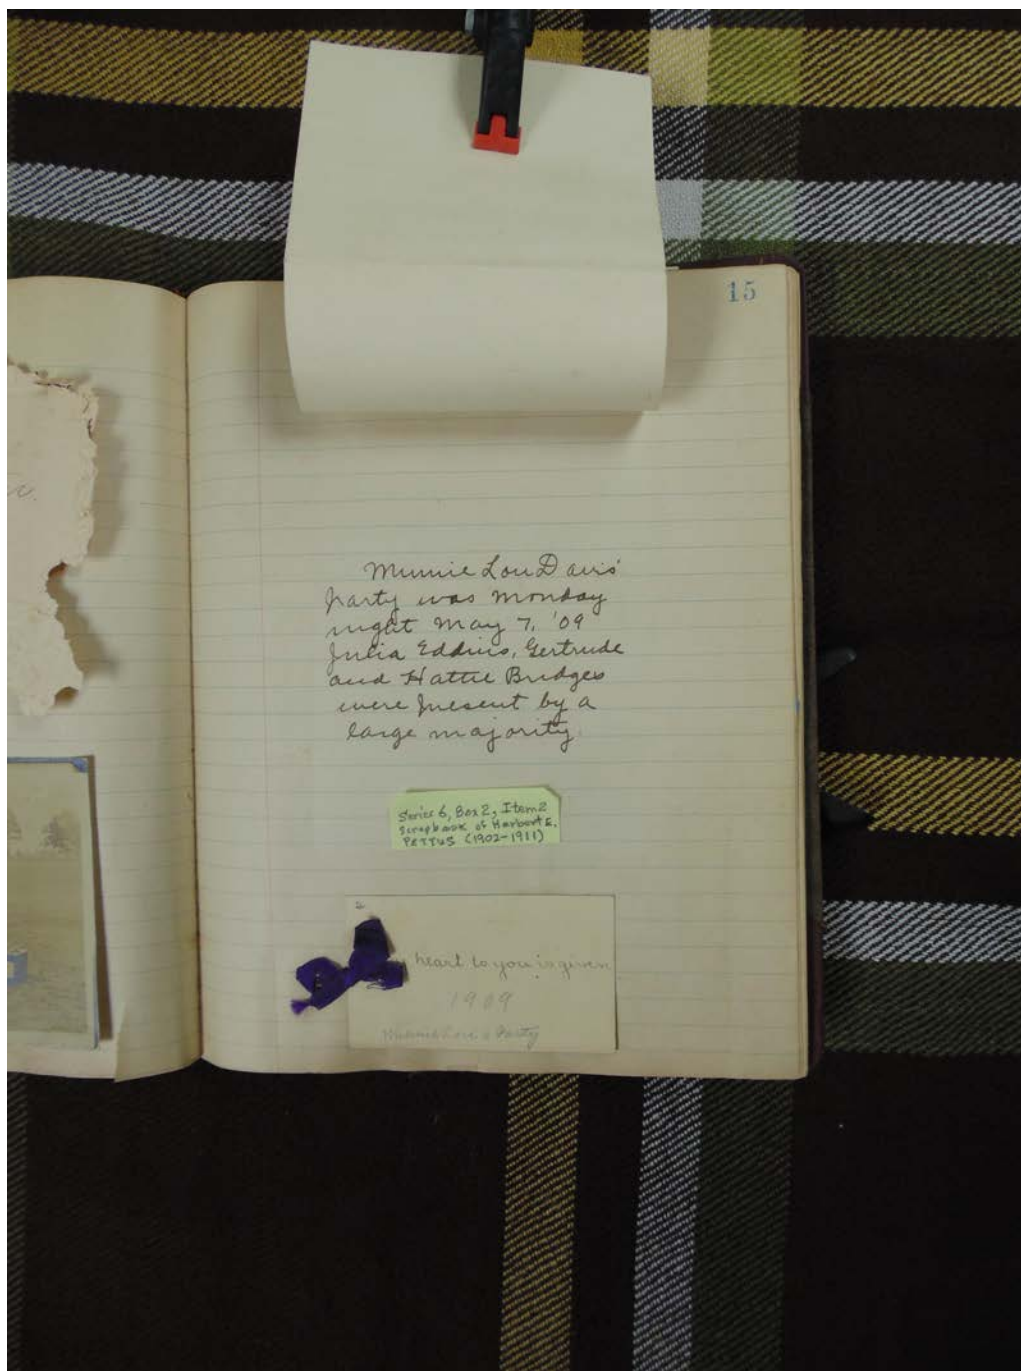 15
Minnie Lou Davis'
party was Monday
night May 7, '09
Julia Eddins, Gertrude
and Hattie Bridges
were present by a
large majority.
Series 6, Box 2, Item 2
Scrapbook of Harbert E.
PETTUS (1902-1911)
heart to you is given
1909
Party